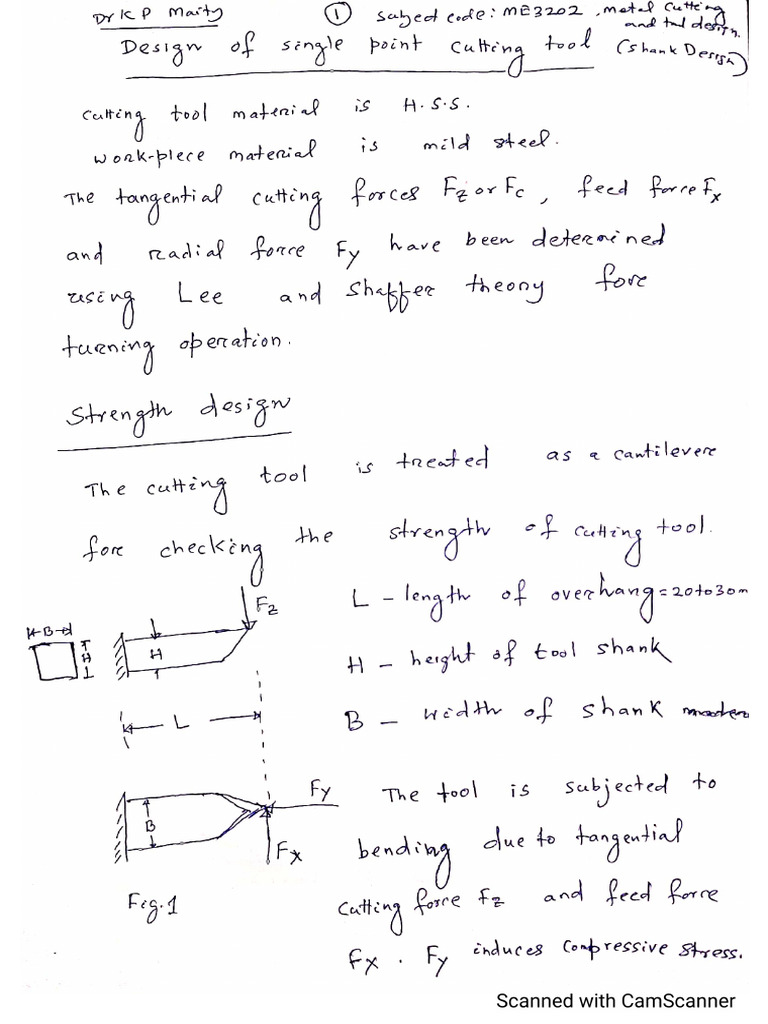 Dr K P Maity ① Subject code: ME3202, metal cutting
and tool design.
Design of single point cutting tool (Shank Design)
Cutting tool material is H.S.S.
Work-piece material is mild steel.
The tangential cutting forces Fz or Fc, feed force Fx
and radial force Fy have been determined
using Lee and Shaffer theory for
turning operation.
Strength design
The cutting tool is treated as a cantilever
for checking the strength of cutting tool.
Fz
L - length of overhang = 20 to 30 m
B
H
H
H - height of tool shank
L
B - width of shank
Fy
The tool is subjected to
B
Fx
bending due to tangential
Fig.1
cutting force Fz and feed force
Fx. Fy induces compressive stress.
Scanned with CamScanner